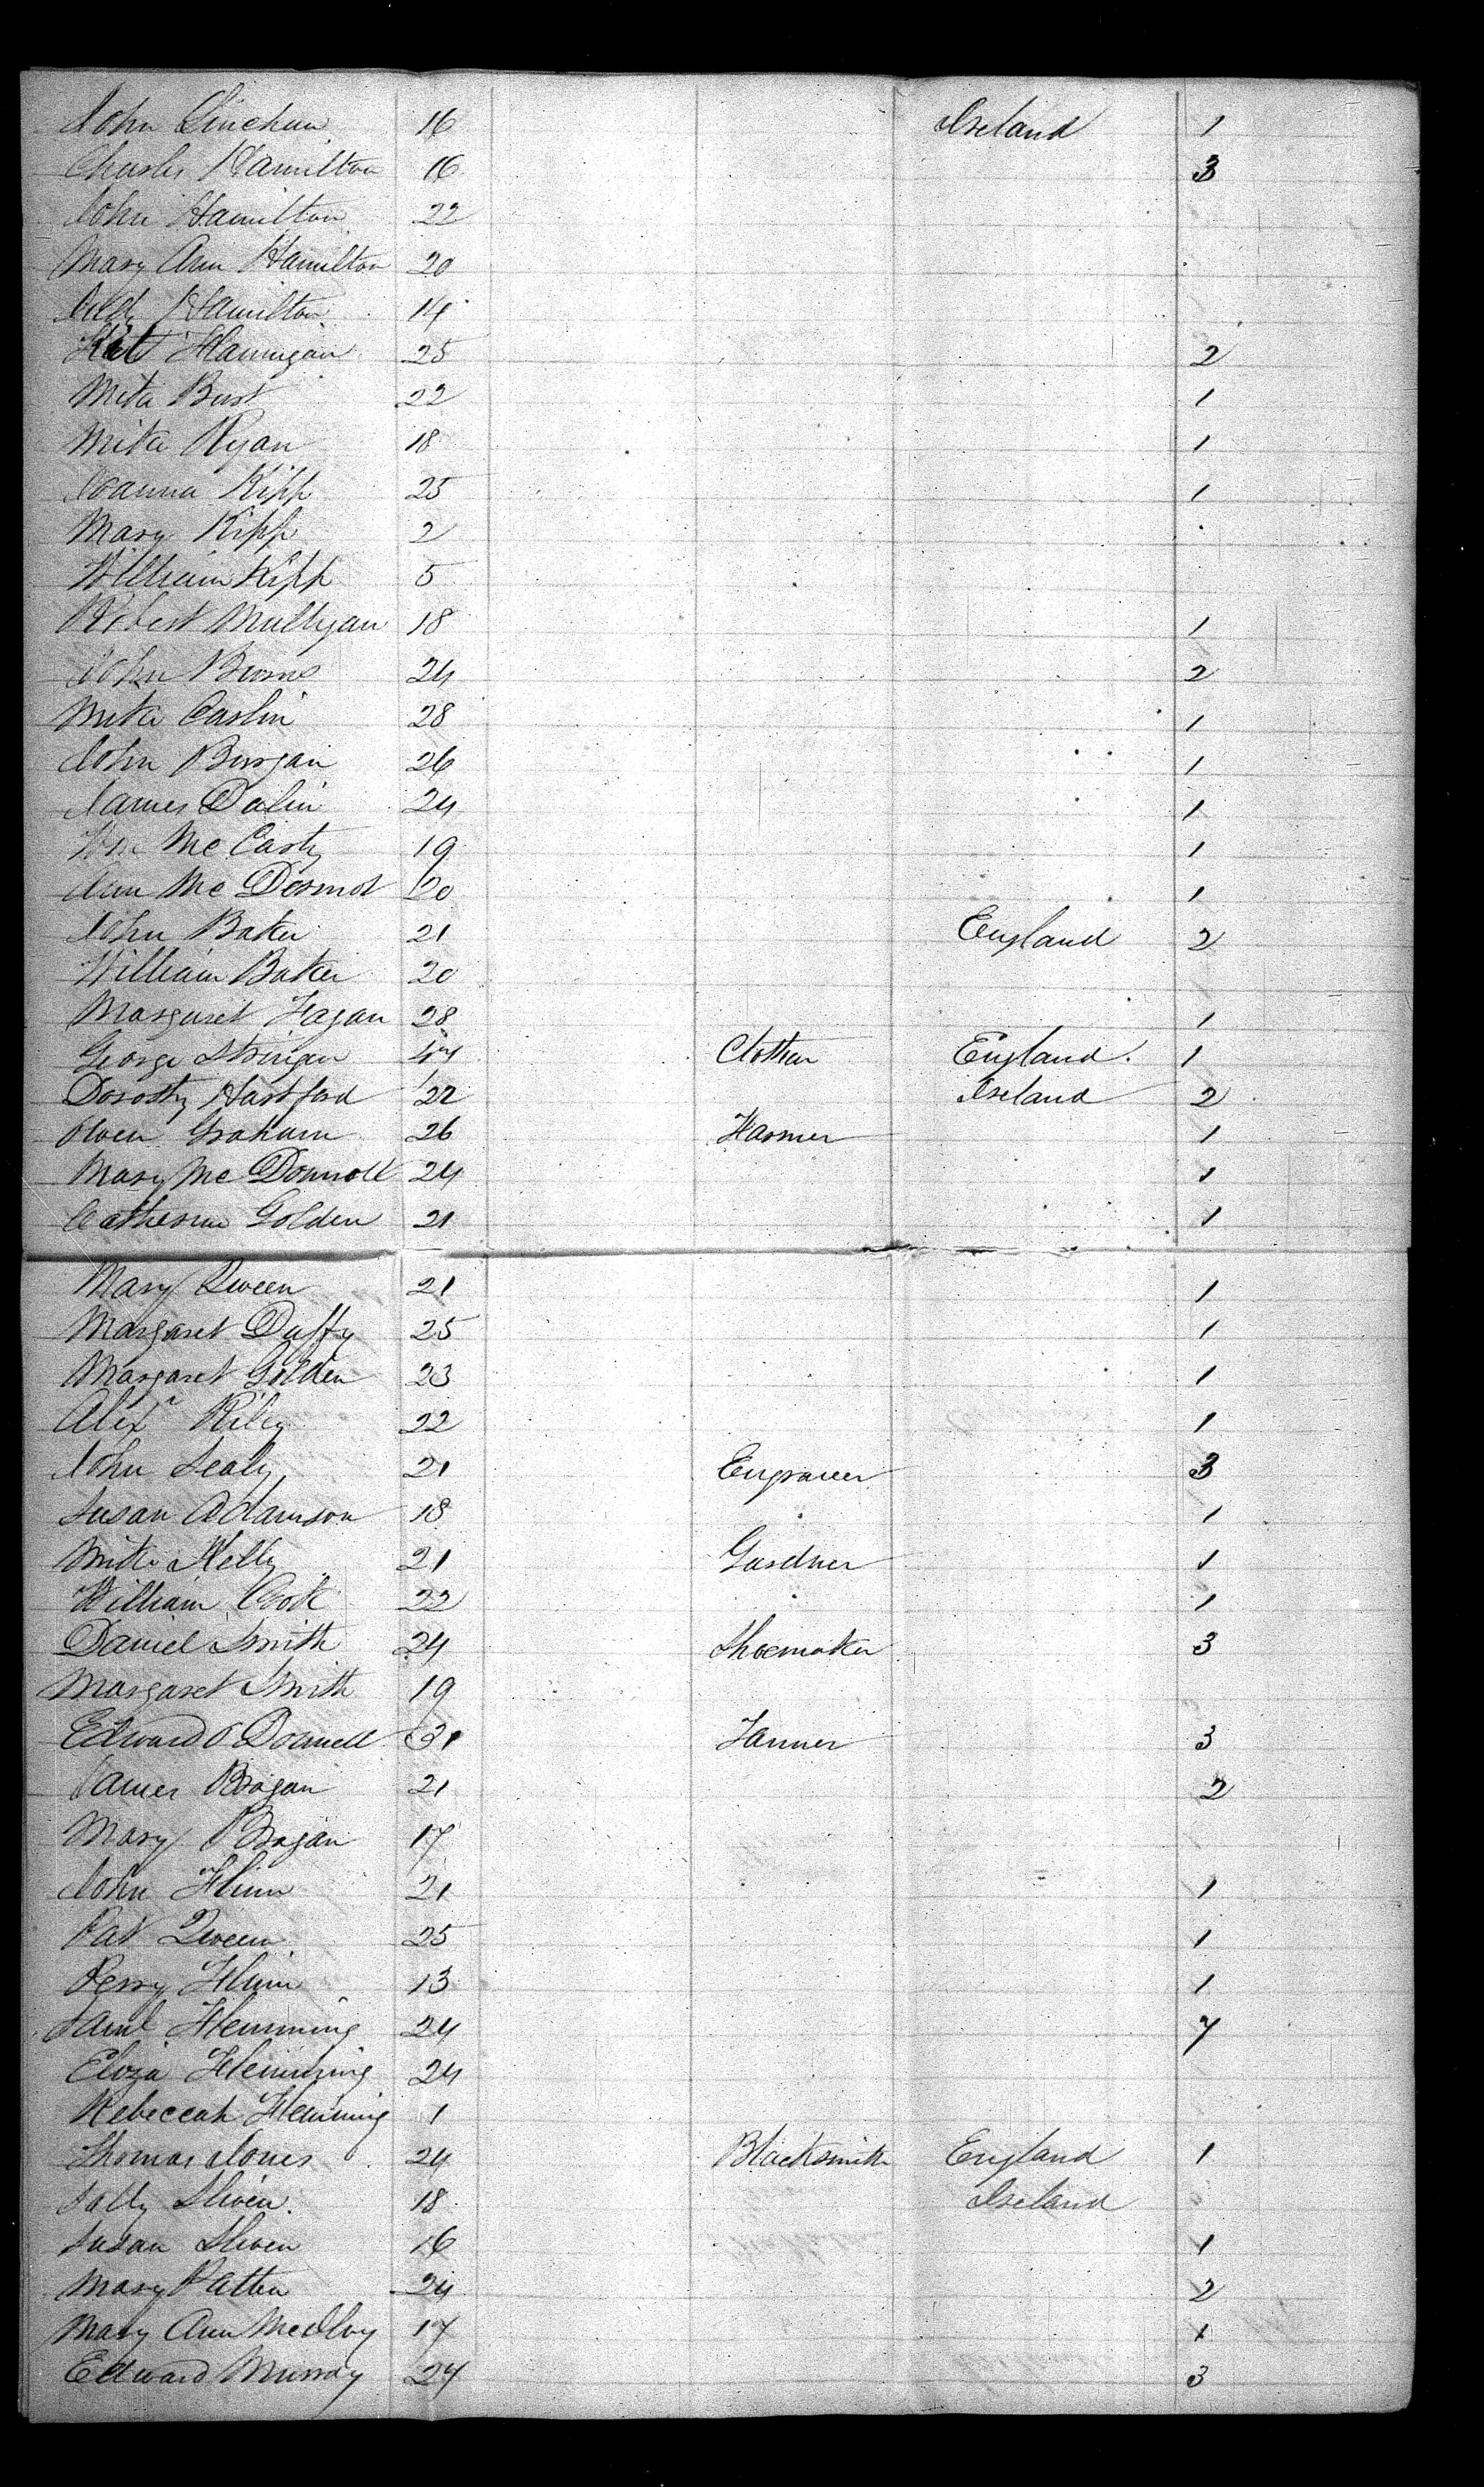 John Linehan 16 Ireland 1
Charles Hamilton 16 3
John Hamilton 22
Mary Ann Hamilton 20
Hamilton 14
Flannigan 25 2
Mike 22 1
Mike Ryan 18 1
Joanna Kipp 25 1
Mary Kipp 2
William Kipp 5
Robert Mulligan 18 1
John Burns 24 2
Mike Carlin 28 1
John Burgan 26 1
James Dalin 24 1
Wm Mc Carty 19 1
Ann Mc Dermot 20 1
John Baker 21 England 2
William Baker 20
Margaret Fagan 28 1
George Stringer Clothier England 1
Dorothy Hartford 22 Ireland 2
Owen Graham 26 Farmer 1
Mary Mc Donnoll 24 1
Catherine Golden 21 1
Mary Queen 21 1
Margaret Duffy 25 1
Margaret Golden 23 1
Alexr Riley 22 1
John Sealy 21 Engraver 3
Susan Adamson 18 1
Mike Kelly 21 Gardner 1
William Cook 22 1
Daniel Smith 24 Shoemaker 3
Margaret Smith 19
Edward O Donnell 31 Tanner 3
James Brogan 21 2
Mary Brogan 17
John Flinn 21 1
Pat Queen 25 1
Perry Flinn 13 1
Saml Flemming 24 7
Eliza Flemming 24
Rebeccah Flemming 1
Thomas Jones 24 Blacksmith England 1
Sally Sliven 18 Ireland
Susan Sliven 16 1
Mary Patten 24 2
Mary Ann McElvoy 17 1
Edward Murray 24 3